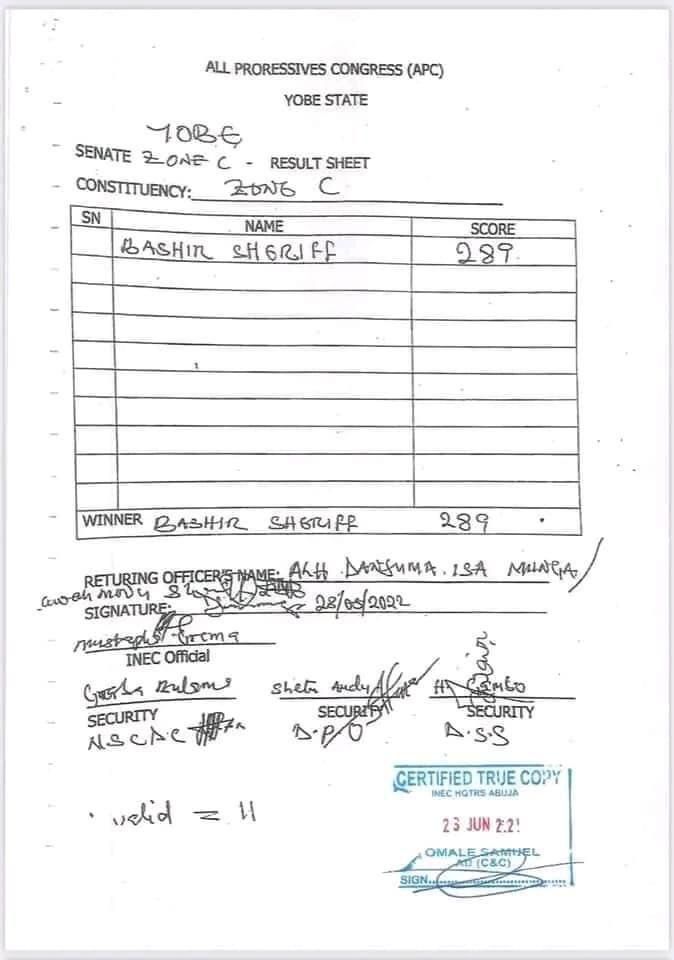 ALL PRORESSIVES CONGRESS (APC)
YOBE STATE
YOBE
SENATE ZONE C - RESULT SHEET
CONSTITUENCY: ZONE C
SN NAME SCORE
BASHIR SHERIFF 289
WINNER BASHIR SHERIFF 289
RETURING OFFICER'S NAME: ALH. DANJUMA. ISA MUNGA
SIGNATURE: 28/05/2022
INEC Official
SECURITY SECURITY SECURITY
N.S.C.D.C D.P.O D.S.S
valid = 11
CERTIFIED TRUE COPY
INEC HQTRS ABUJA
23 JUN 2
OMALE SAMUEL
AD (C&C)
SIGN